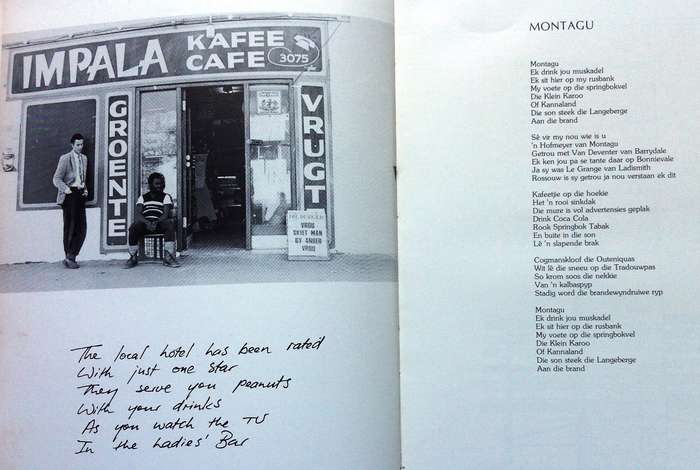 IMPALA KAFEE
CAFE 3075
GROENTE
VRUGT
DIE BURGER
VROU
SKIET MAN
BY ANDER
VROU
The local hotel has been rated
With just one star
They serve you peanuts
With your drinks
As you watch the TV
In the Ladies' Bar
MONTAGU
Montagu
Ek drink jou muskadel
Ek sit hier op my rusbank
My voete op die springbokvel
Die Klein Karoo
Of Kannaland
Die son steek die Langeberge
Aan die brand
Sê vir my nou wie is u
'n Hofmeyer van Montagu
Getrou met Van Deventer van Barrydale
Ek ken jou pa se tante daar op Bonnievale
Ja sy was Le Grange van Ladismith
Rossouw is sy getrou ja nou verstaan ek dit
Kafeetjie op die hoekie
Het 'n rooi sinkdak
Die mure is vol advertensies geplak
Drink Coca Cola
Rook Springbok Tabak
En buite in die son
Lê 'n slapende brak
Cogmanskloof die Outeniquas
Wit lê die sneeu op die Tradouwpas
So krom soos die nekkie
Van 'n kalbaspyp
Stadig word die brandewyndruiwe ryp
Montagu
Ek drink jou muskadel
Ek sit hier op die rusbank
My voete op die springbokvel
Die Klein Karoo
Of Kannaland
Die son steek die Langeberge
Aan die brand